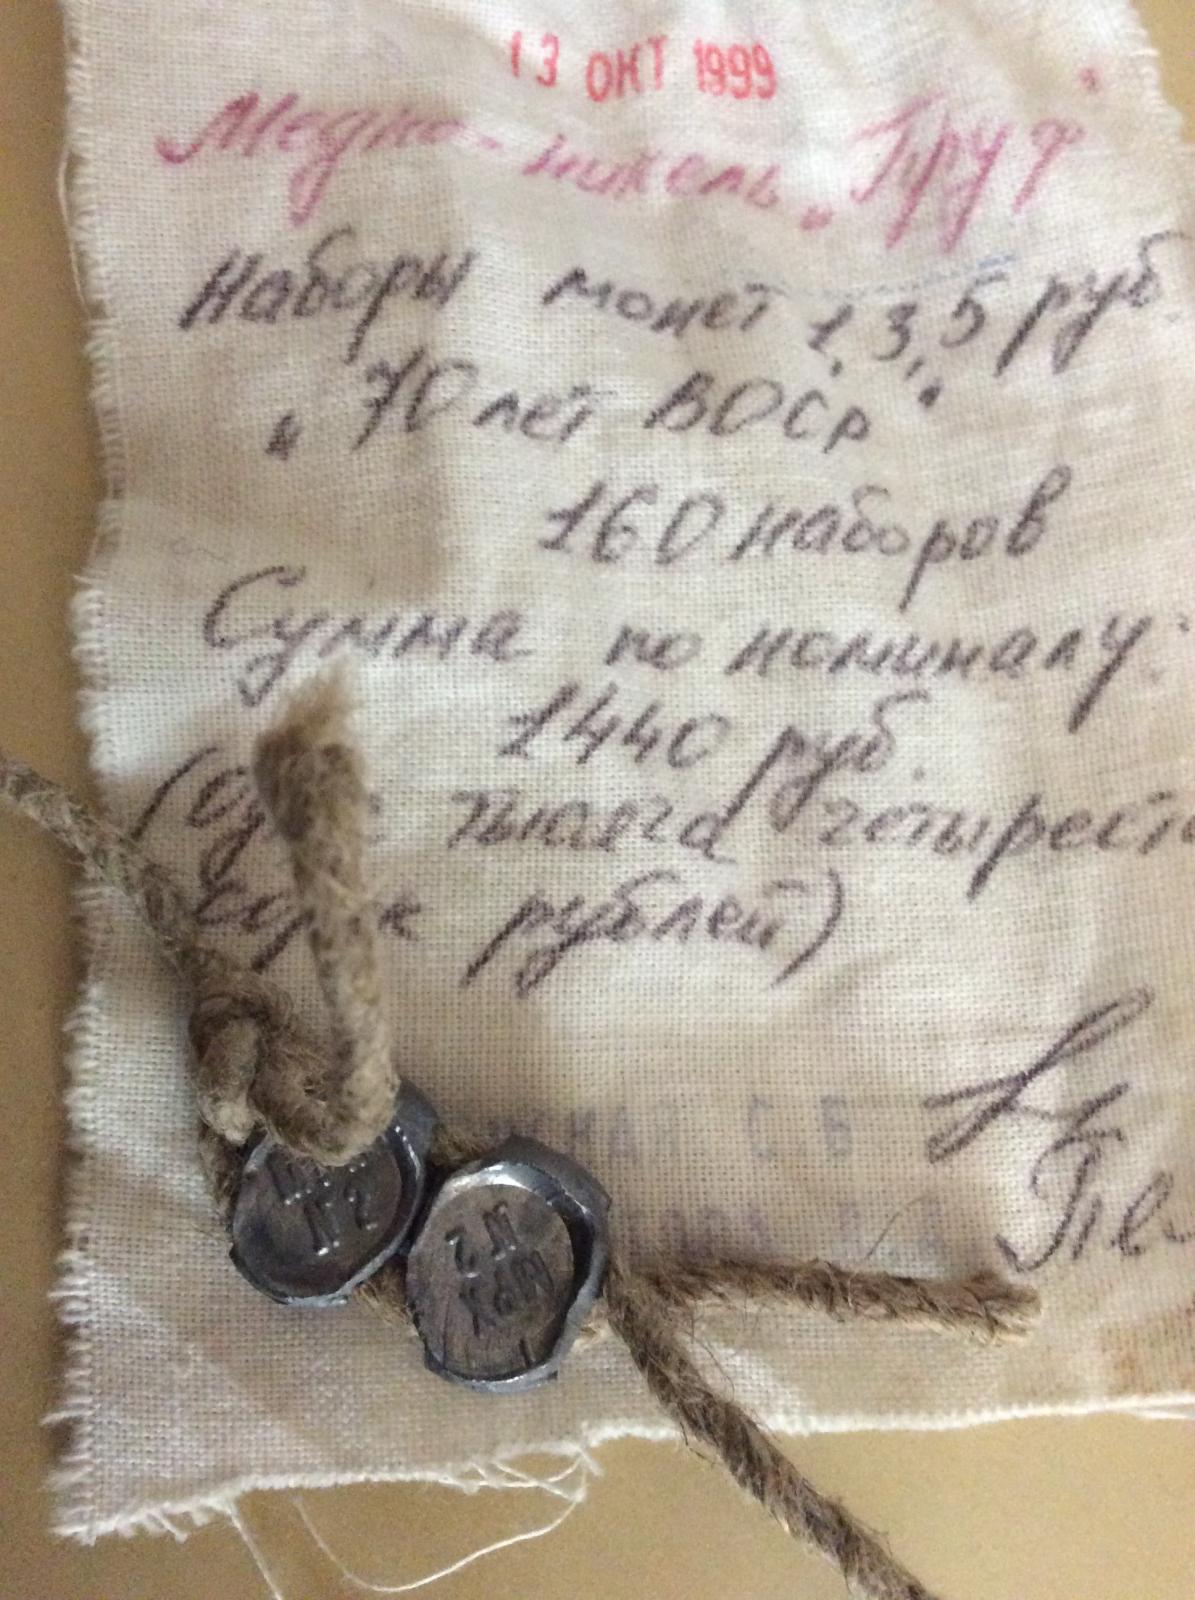 13 ОКТ 1999
Медно-никель „Пруф"
Наборы монет 1,3,5 руб.
„70 лет ВОСР"
160 наборов
Сумма по номиналу:
1440 руб.
тысяча четыреста
сорок рублей)
№2
№2